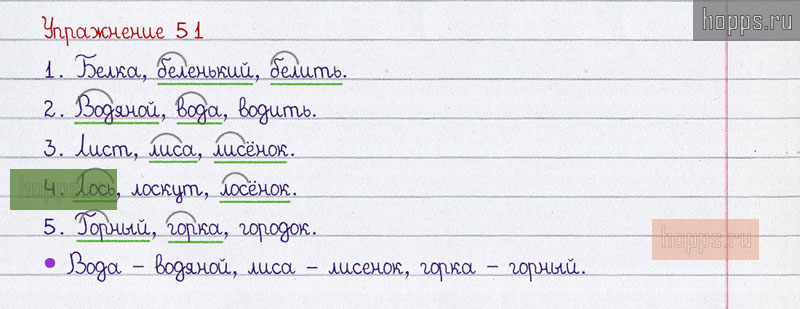 hopps.ru
Упражнение 51
1. Белка, беленький, белить.
2. Водяной, вода, водить.
3. Лист, лиса, лисёнок.
4. Лось, лоскут, лосёнок.
5. Горный, горка, городок.
hopps.ru
• Вода – водяной, лиса – лисенок, горка – горный.